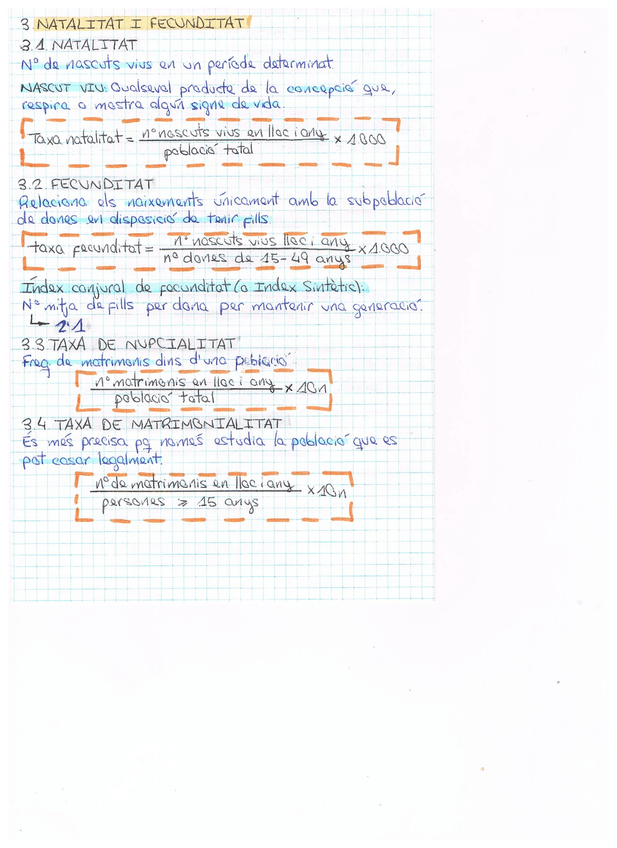 3 NATALITAT I FECUNDITAT
3.1 NATALITAT
Nº de nascuts vius en un període determinat.
NASCUT VIU: Qualsevol producte de la concepció que,
respira o mostra algún signe de vida.
Taxa natalitat = nº nascuts vius en lloc i any x 1000
població total
3.2. FECUNDITAT
Relaciona els naixements únicament amb la subpoblació
de dones en disposició de tenir fills
taxa fecunditat = nº nascuts vius lloc i any x 1000
nº dones de 15-49 anys
Índex conjural de fecunditat (o Index Sintètic):
Nº mitja de fills per dona per mantenir una generació.
↳ 2'1
3.3 TAXA DE NUPCIALITAT
Freq de matrimonis dins d'una població
nº matrimonis en lloc i any x 10n
població total
3.4 TAXA DE MATRIMONIALITAT
És més precisa pq només estudia la població que es
pot casar legalment.
nº de matrimonis en lloc i any x 10n
persones ≥ 15 anys